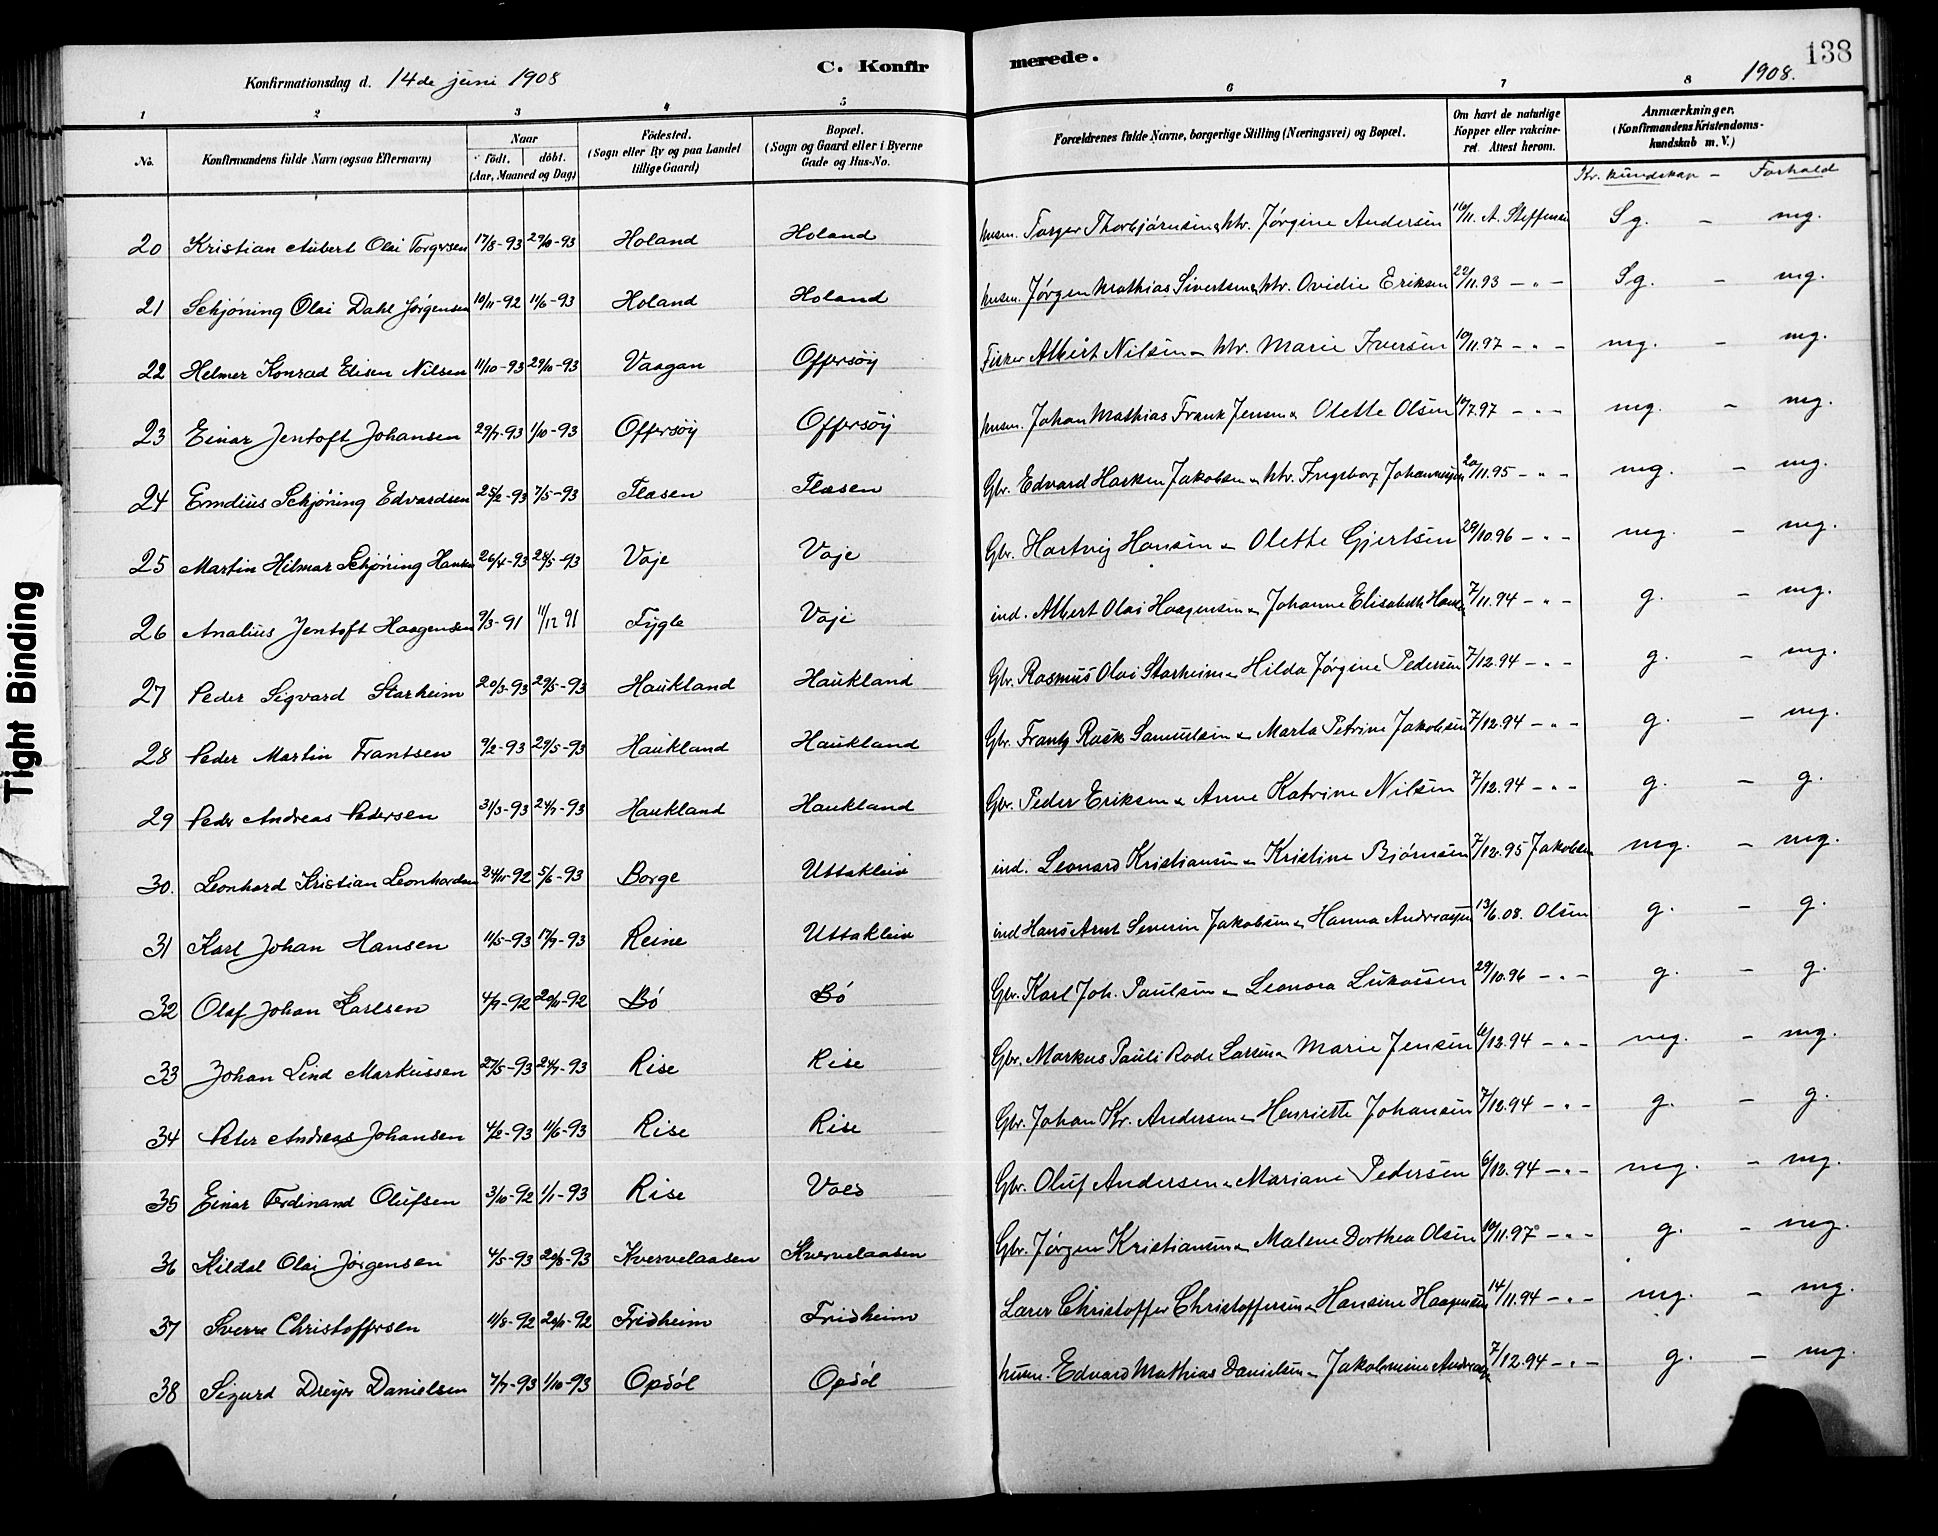 138
C. Konfirmerede.
Konfirmationsdag d. 14de juni 1908
1908.
1 2 3 4 5 6 7 8
No. Konfirmandens fulde Navn (ogsaa Efternavn) Naar födt. döbt. (Aar, Maaned og Dag) Födested. (Sogn eller By og paa Landet tillige Gaard) Bopæl. (Sogn og Gaard eller i Byerne Gade og Hus-No. Forældrenes fulde Navne, borgerlige Stilling (Næringsvei) og Bopæl. Om havt de naturlige Kopper eller vakcineret. Attest herom. Anmærkninger. (Konfirmandens Kristendomskundskab m. V.)
Kr. kundskap – Forhold
20 Kristian Aubert Olai Torgersen 17/8-93 29/10-93 Holand Holand husm. Torger Thorbjørnsen & htr. Jørgine Andersen 16/11. A. Steffensen Sg. – mg.
21 Schjöning Olai Dahl Jørgensen 10/11-92 11/6-93 Holand Holand husm. Jørgen Mathias Sivertsen & htr. Ovidie Eriksen 22/11.93 – " – Sg. – mg.
22 Helmer Konrad Elisen Nilsen 11/10-93 29/10-93 Vaagan Offersöy Fisker Albert Nilsen & htr. Marie Iversen 10/11.97 – " – mg. – mg.
23 Einar Jentoft Johansen 29/7-93 1/10-93 Offersöy Offersöy husm. Johan Mathias Frank Jensen & Olette Olsen 10/7.97 – " – mg. – mg.
24 Emdius Schjöning Edvardsen 25/2-93 7/5-93 Flæsen Flæsen Gbr. Edvard Hacken Jakobsen & htr. Ingeborg Johannesen 20/11.95 – " – mg. – mg.
25 Martin Hilmar Schjöning Hansen 26/4-93 28/5-93 Voje Voje Gbr. Hartvig Hansen & Olette Gjertsen 29/10.96 – " – mg. – mg.
26 Analius Jentoft Haagensen 9/3-91 11/12 91 Fygle Voje ind. Albert Olai Haagensen & Johanne Elisabeth Hansen 7/11.94 – " – g. – mg.
27 Peder Sigvard Starheim 20/3-93 29/5-93 Haukland Haukland Gbr. Rasmus Olai Starheim & Hilda Jørgine Pedersen 7/12.94 – " – g. – mg.
28 Peder Martin Frantsen 9/2-93 29/5-93 Haukland Haukland Gbr. Frantz Rask Samuelsen & Marta Petrine Jakobsen 7/12.94 – " – g. – mg.
29 Peder Andreas Pedersen 31/3-93 24/7-93 Haukland Haukland Gbr. Peder Eriksen & Anne Katrine Nilsen 7/12.94 – " – g. – g.
30. Leonhard Kristian Leonhardsen 24/11-92 5/6-93 Borge Uttakleiv ind. Leonard Kristiansen & Kristine Bjørnsen 7/12.95 Jakobsen mg. – mg.
31 Karl Johan Hansen 11/5-93 17/9-93 Reine Uttakleiv ind Hans Arnt Severin Jakobsen & Hanna Andreasen 13/6.08. Olsen g. – g.
32 Olaf Johan Karlsen 4/9-92 20/11-92 Bö Bö Gbr. Karl Joh. Paulsen & Leonora Lukassen 29/10.96 – " – g. – g.
33 Johan Lind Markussen 27/5-93 24/7-93 Rise Rise Gbr. Markus Pauli Rode Larsen & Marie Jensen 6/12.94 – " – mg. – mg.
34 Peter Andreas Johansen 4/2-93 11/6-93 Rise Rise Gbr. Johan Kr. Andersen & Henriette Johansen 7/12.94 – " – g. – g.
35 Einar Ferdinand Olufsen 3/10-92 1/1-93 Rise Voes Gbr. Oluf Andersen & Mariane Pedersen 6/12.94 – " – mg. – mg.
36 Kildal Olai Jørgensen 4/5-93 20/8-93 Kvervelaasen Kvervelaasen Gbr. Jørgen Kristiansen & Malene Dorthea Olsen 10/11.97 – " – g. – mg.
37 Sverre Christoffersen 11/8-92 20/11-92 Fridheim Fridheim Lærer Christoffer Christoffersen & Hansine Haagensen 14/11.94 – " – mg. – mg.
38 Sigurd Dreyer Danielsen 7/7-93 1/10-93 Opdöl Opdöl husm. Edvard Mathias Danielsen & Jakobmine Andreasen 7/12.94 – " – g. – mg.
Tight Binding